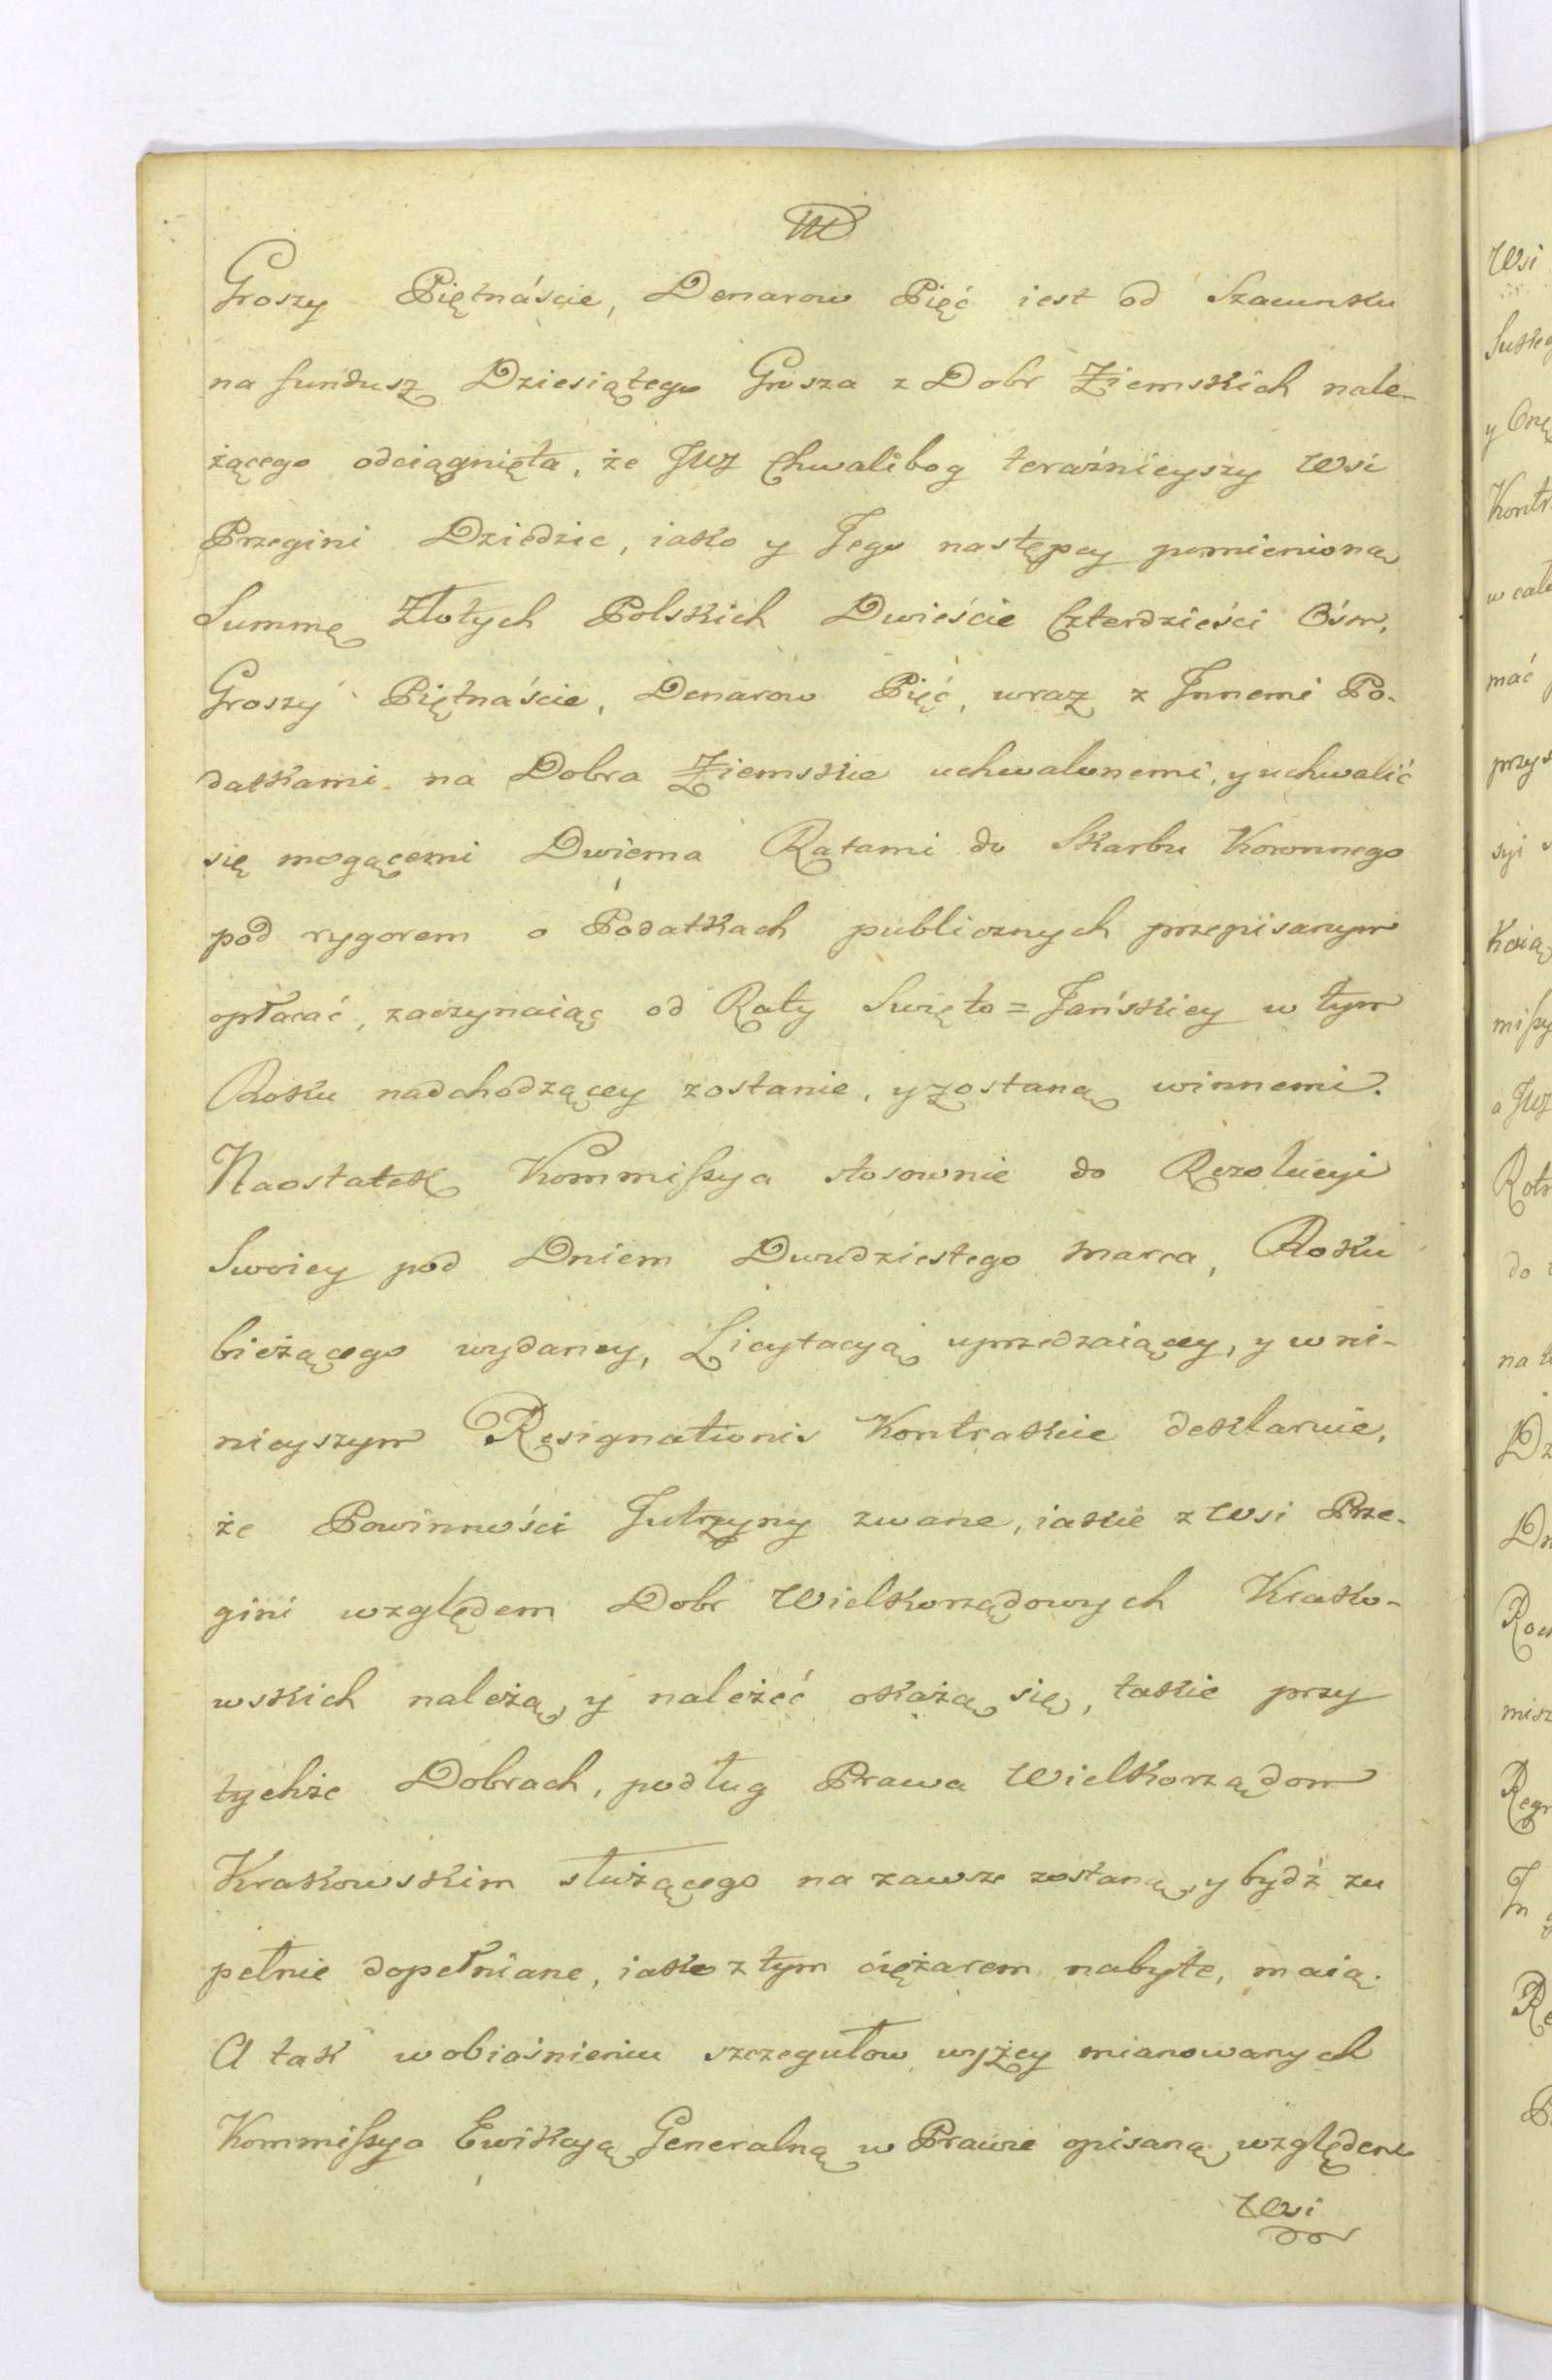 Groszy Piętnáście, Denarow Pięć iest od Szacunku
na fundusz Dziesiątego Grosza z Dobr Ziemskich nale-
żącego odciągnięta, że JWJ Chwalibog teraźnieyszy Wsi
Przegini Dziedzic, iako y Jego następcy pomienioną
Summę Złotych Polskich Dwieście Czterdzieści Ośm,
Groszy Piętnaście, Denarow Pięć, wraz z Innemi Po-
datkami na Dobra Ziemskie uchwalonemi, y uchwalić
się mogącemi Dwiema Ratami do Skarbu Koronnego
pod rygorem o Podatkach publicznych przepisanym
opłacać, zaczynaiąc od Raty Swięto=Jańskiey w tym
Roku nadchodzącey zostanie, y zostaną winnemi.
Naostatek Kommissya stosownie do Rezolucyi
Swoiey pod Dniem Dwudziestego Marca, Roku
bieżącego wydaney, Licytacyą uprzedzaiącey, y w ni-
nieyszym Resignationis Kontrakcie deklaruie,
że Powinności Jutrzyny zwane, iakie z Wsi Prze-
gini względem Dobr Wielkorządowych Krako-
wskich należą, y należeć okażą się, takie przy
tychże Dobrach, podług Prawa Wielkorządom
Krakowskim służącego na zawsze zostaną, y bydź zu
pełnie dopełniane, iako z tym ciężarem nabyte, maią.
A tak w obiaśnieniu szczegułow wyżey mianowanych
Kommissya Ewikcyą Generalną w Prawie opisaną względem
Wsi